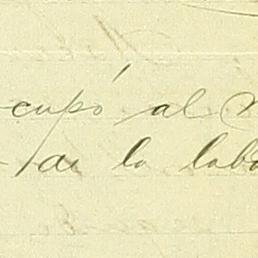 cupó al
de la labo